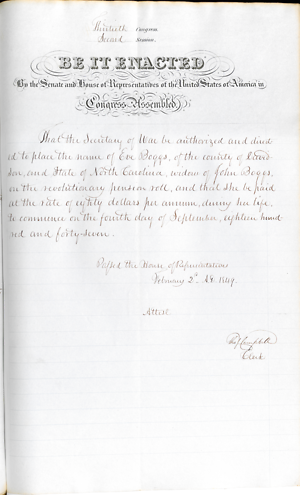 Thirtieth Congress.
Second Session.
BE IT ENACTED
By the Senate and House of Representatives of the United States of America in
Congress Assembled,
That the Secretary of War be authorized and direct
ed to place the name of Eve Boggs, of the county of David
son, and State of North Carolina, widow of John Boggs,
on the revolutionary pension roll, and that she be paid
at the rate of eighty dollars per annum, during her life,
to commence on the fourth day of September, eighteen hund
red and forty-seven.
Passed the House of Representatives
February 2d. AD 1849.
Attest
Campbell
Clerk